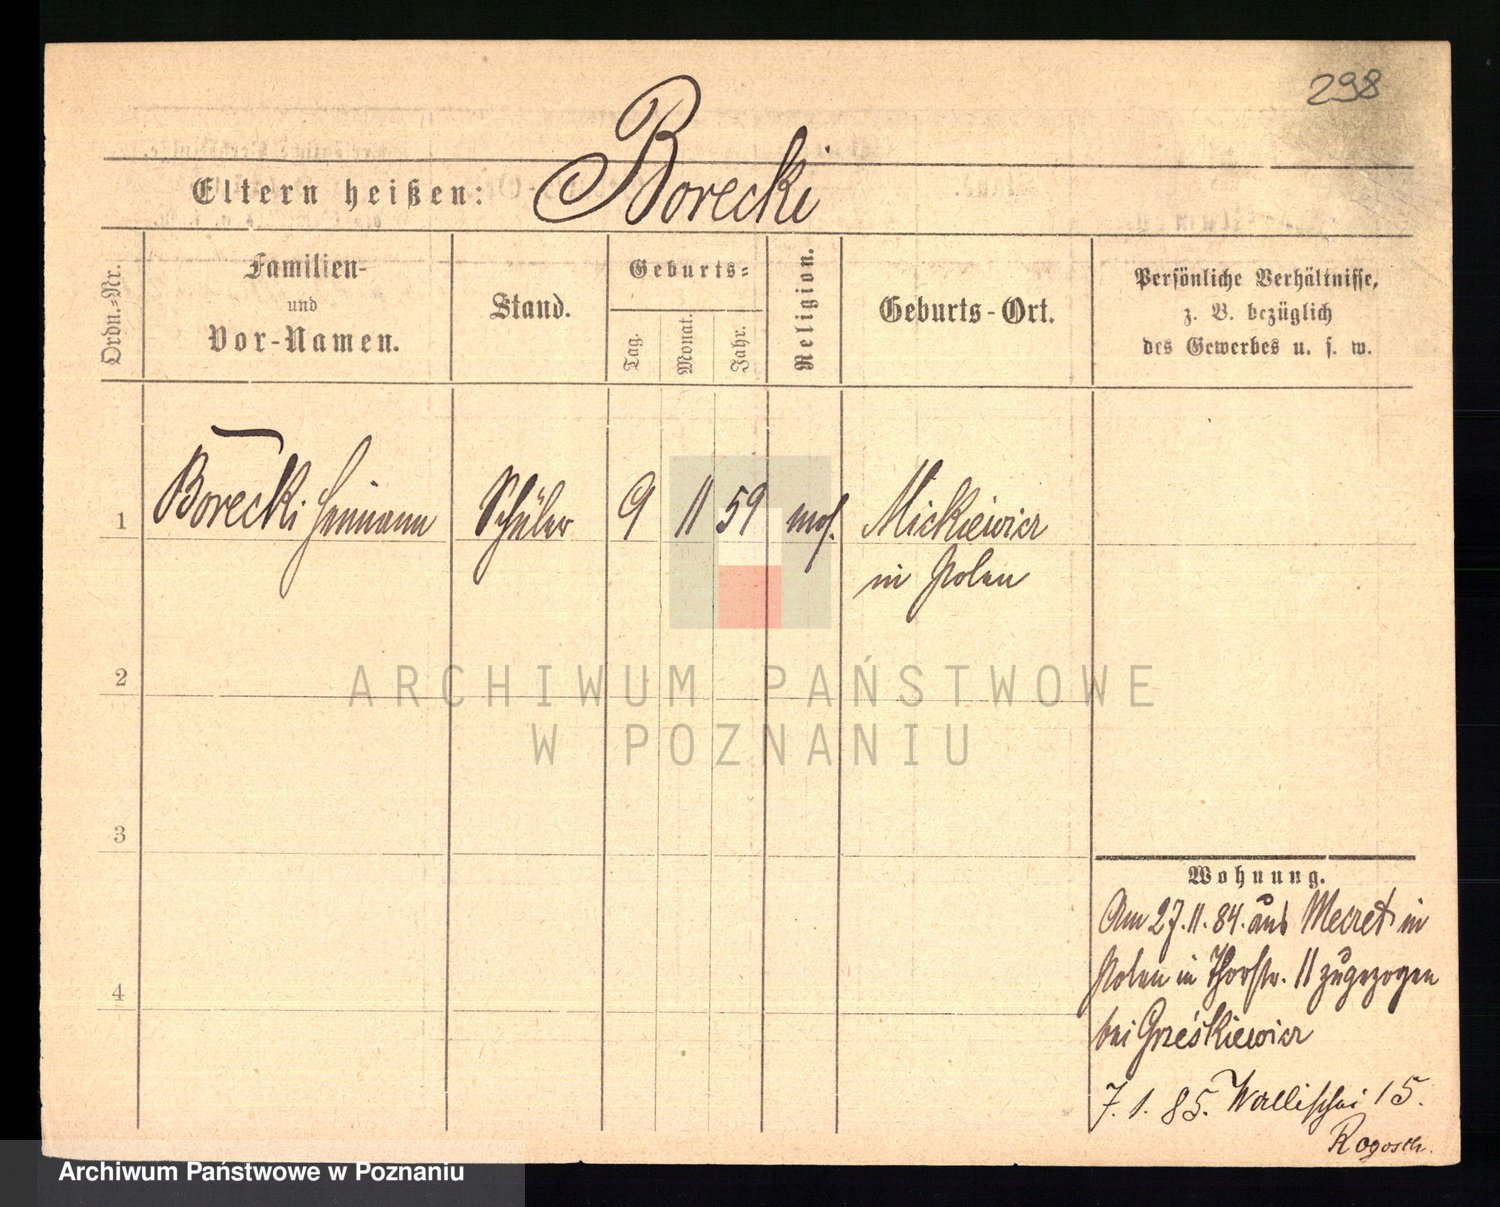 298
Borecki
Eltern heißen:
Ordn.-Nr.
Familien-
und
Vor-Namen.
Stand.
Geburts-
Tag.
Monat.
Jahr.
Religion.
Geburts-Ort.
Persönliche Verhältnisse,
z. B. bezüglich
des Gewerbes u. s. w.
1 Borecki Heimann Schüler 9 11 59 mos. Mickiewicz
in Polen
2
3
4
ARCHIWUM PAŃSTWOWE
W POZNANIU
Wohnung.
Am 27.11.84. aus in
Polen in Thorstr. 11 zugezogen
bei Grześkiewicz
7. 1. 85. Wallischei 15.
Archiwum Państwowe w Poznaniu